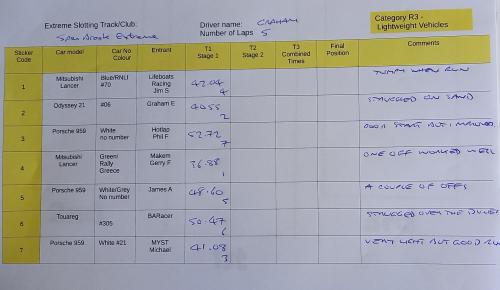 Extreme Slotting Track/Club:
Driver name: GRAHAM
Number of Laps 5
Category R3 -
Lightweight Vehicles
Sticker Code Car model Car No Colour Entrant T1 Stage 1 T2 Stage 2 T3 Combined Times Final Position Comments
1 Mitsubishi Lancer Blue/RNLI #70 Lifeboats Racing Jim S 42.04 4 WHEN RUN
2 Odyssey 21 #06 Graham E 4055 2 STRUGGLED ON SAND
3 Porsche 959 White no number Hotlap Phil F 52.72 7 START BUT IMPROVED
4 Mitsubishi Lancer Green/ Rally Greece Makem Gerry F 36.88 1 ONE OFF WORKED WELL
5 Porsche 959 White/Grey No number James A 48.60 5 A COUPLE OF OFFS
6 Touareg #305 BARacer 50.47 6 STRUGGLED OVER THE DUNES
7 Porsche 959 White #21 MYST Michael 41.08 3 VERY LIGHT BUT GOOD RUN